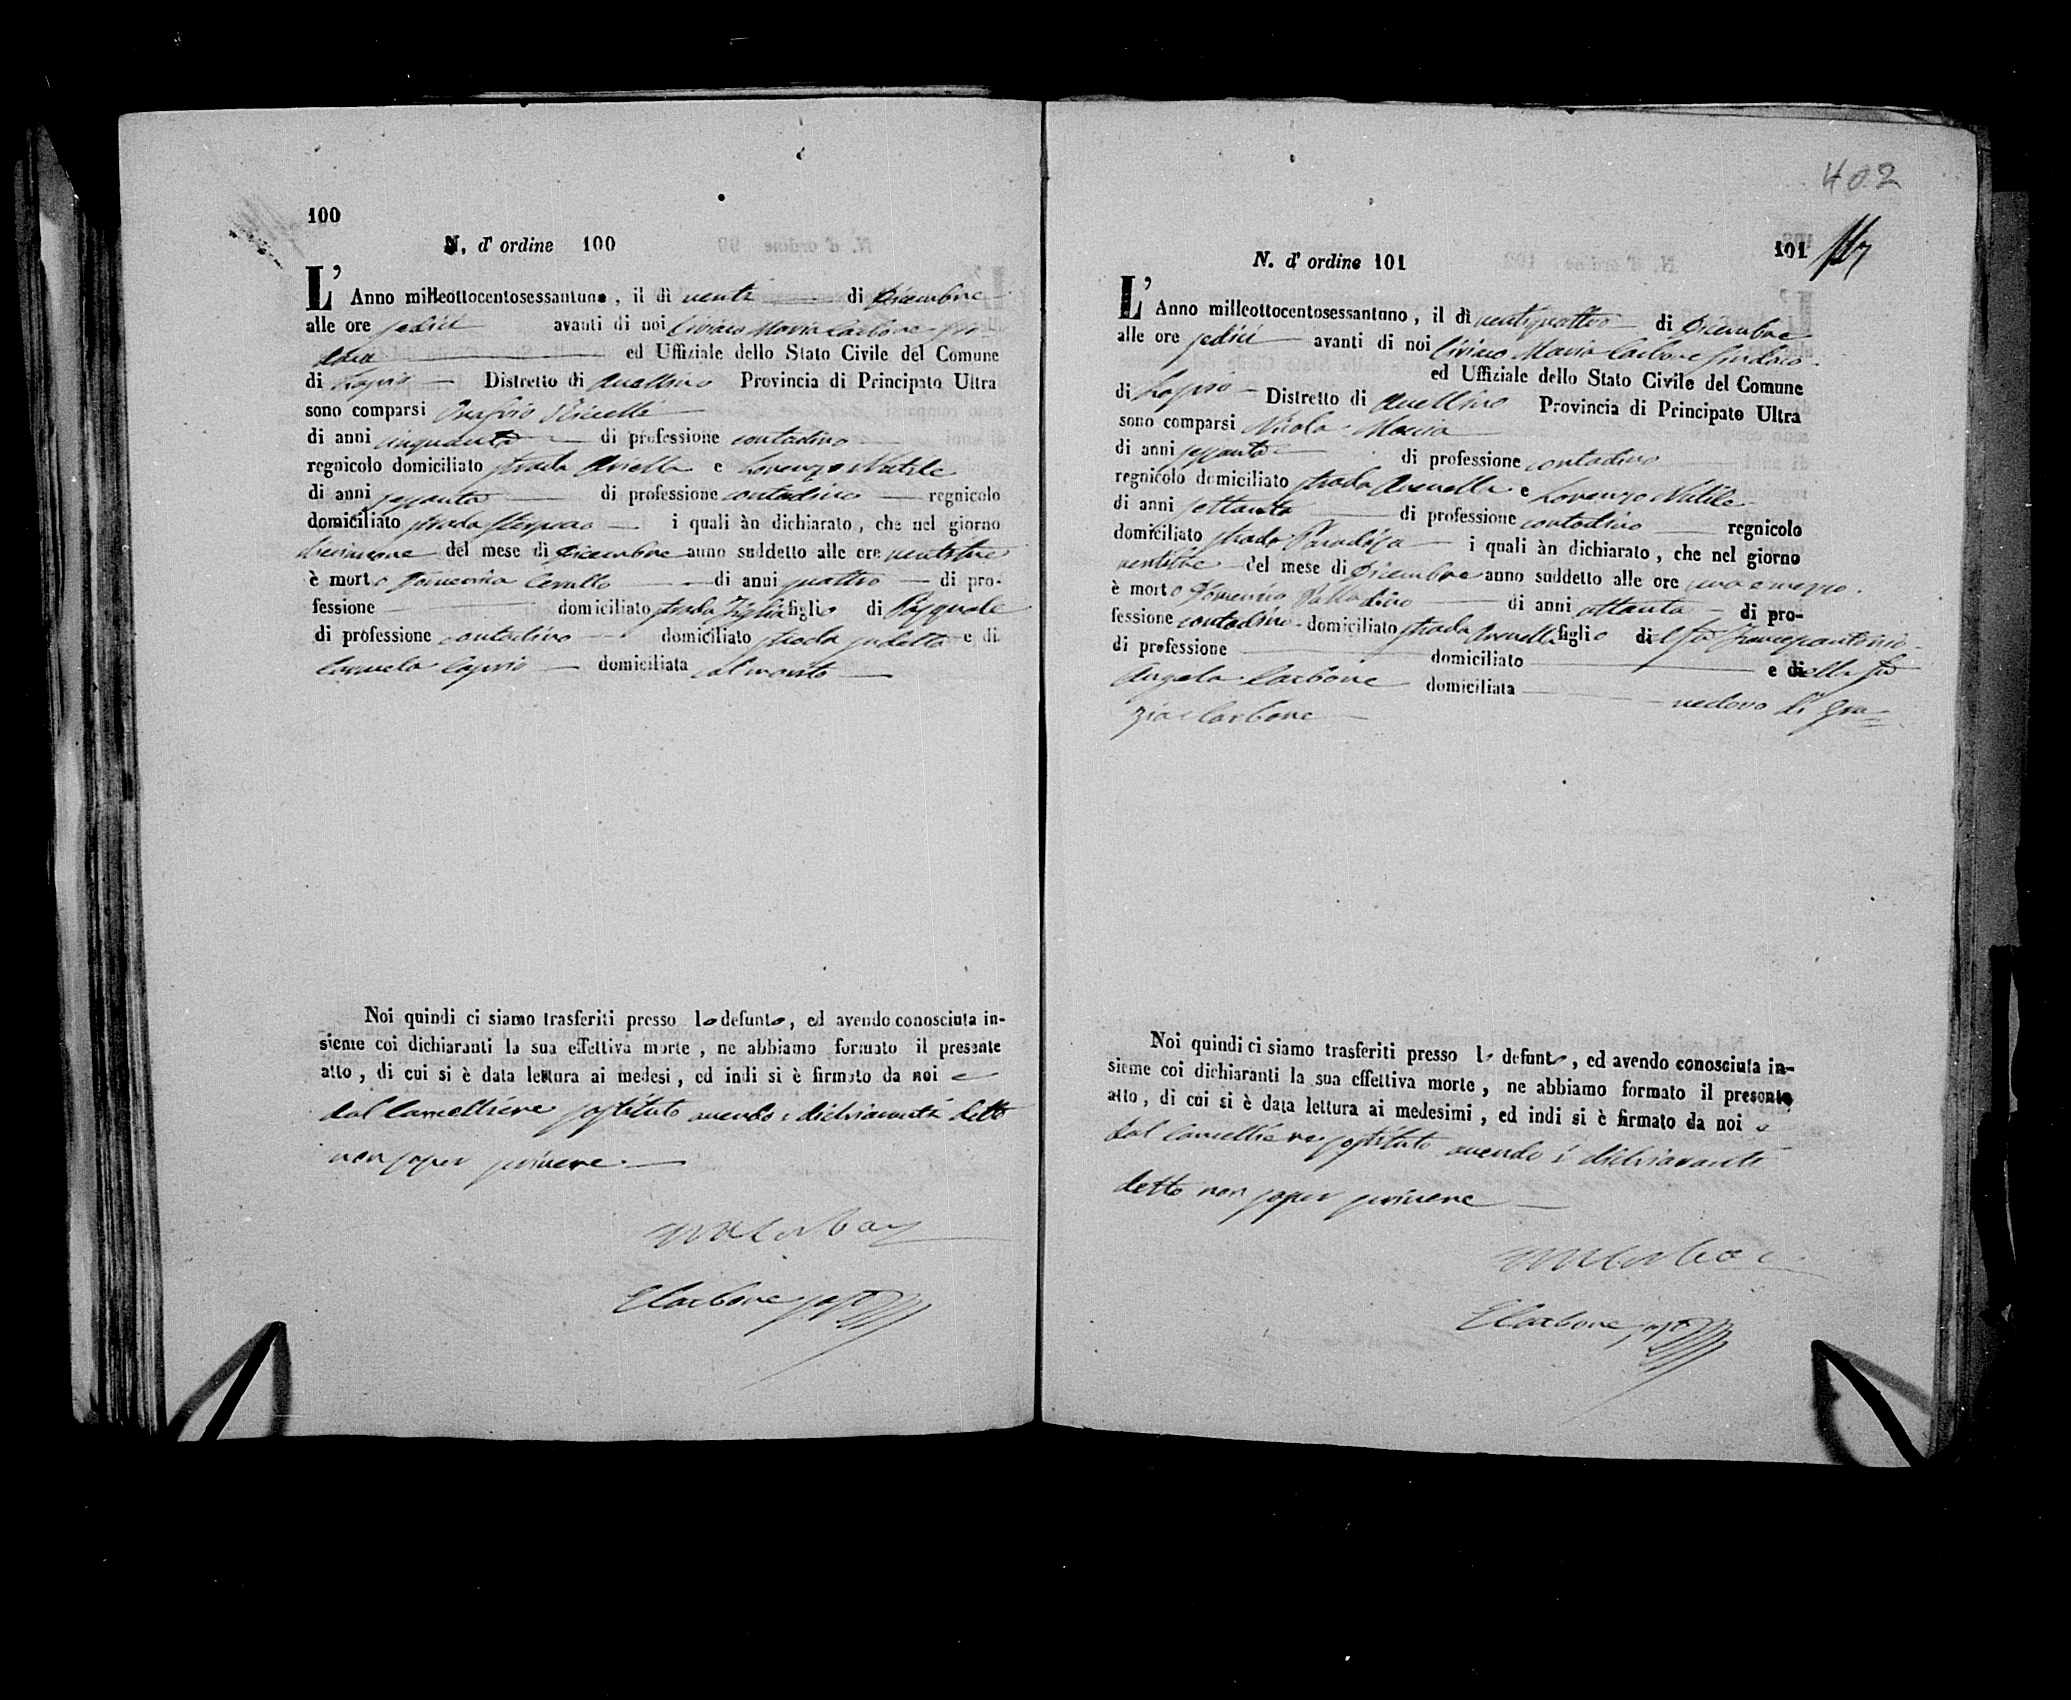 100
N. d' ordine 100
L' Anno milleottocentosessantuno, il dì venti di Dicembre
alle ore sedici avanti di noi Civico Maria Carbone Sin
daco ed Uffiziale dello Stato Civile del Comune
di Lapio Distretto di Avellino Provincia di Principato Ultra
sono comparsi
di anni cinquanta di professione contadino
regnicolo domiciliato strada e Lorenzo Natile
di anni sessanta di professione contadino regnicolo
domiciliato strada i quali àn dichiarato, che nel giorno
diecinnove del mese di Dicembre anno suddetto alle ore ventitre
è morto Domenico Cerullo di anni quattro di pro-
fessione domiciliato strada figlio di Pasquale
di professione contadino domiciliato strada sudetta e di
Carmela Caprio domiciliata col marito
Noi quindi ci siamo trasferiti presso lo defunto, ed avendo conosciuta in-
sieme coi dichiaranti la sua effettiva morte, ne abbiamo formato il presente
atto, di cui si è data lettura ai medesi, ed indi si è firmato da noi e
dal Cancelliere sostituto avendo i dichiaranti detto
non saper scrivere
Carbone sost
402
101
N. d' ordine 101
L' Anno milleottocentosessantuno, il dì ventiquattro di Dicembre
alle ore sedici avanti di noi Civico Maria Carbone Sindaco
ed Uffiziale dello Stato Civile del Comune
di Lapio Distretto di Avellino Provincia di Principato Ultra
sono comparsi Nicola
di anni sessanta di professione contadino
regnicolo domiciliato strada Arenella e Lorenzo Natile
di anni settanta di professione contadino regnicolo
domiciliato strada Paradiso i quali àn dichiarato, che nel giorno
ventitre del mese di Dicembre anno suddetto alle ore una e mezzo
è morto Domenico Palladino di anni ottanta di pro-
fessione contadino domiciliato strada Arenella figlio del fu Francescantonio
di professione domiciliato e della fu
Angela Carbone domiciliata vedovo di Gra=
zia Carbone
Noi quindi ci siamo trasferiti presso lo defunto, ed avendo conosciuta in-
sieme coi dichiaranti la sua effettiva morte, ne abbiamo formato il presente
atto, di cui si è data lettura ai medesimi, ed indi si è firmato da noi e
dal Cancelliere sostituto avendo i dichiaranti
detto non saper scrivere
Carbone sost